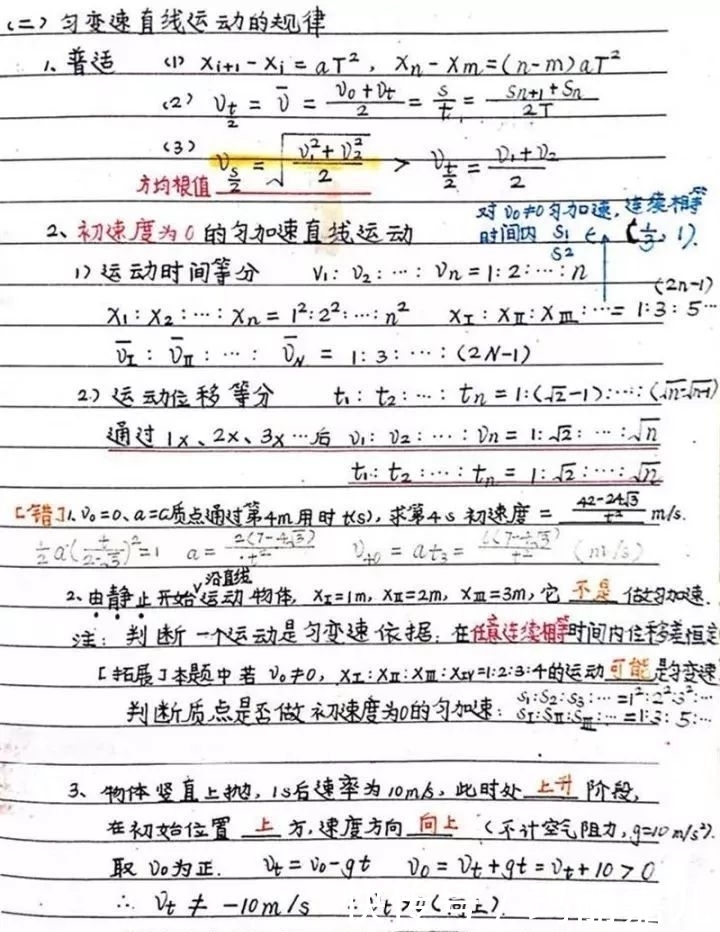 (二) 匀变速直线运动的规律
1、普适 (1) xᵢ₊₁-xᵢ=aT², xₙ-xₘ=(n-m)aT²
(2) v_{t/2} = v̄ = (v₀+vₜ)/2 = s/t = (Sₙ₊₁+Sₙ)/2T
(3) v_{s/2} = √((v₁²+v₂²)/2) > v_{t/2} = (v₁+v₂)/2
方均根值
对 v₀≠0 匀加速, 连续相等
时间内 S₁/S₂ ∈ (1/3, 1).
2、初速度为0的匀加速直线运动
1) 运动时间等分 v₁:v₂:…:vₙ=1:2:…:n
x₁:x₂:…:xₙ=1²:2²:…:n² x_Ⅰ:x_Ⅱ:x_Ⅲ:…=1:3:5…(2n-1)
v̄_Ⅰ:v̄_Ⅱ:…:v̄_N=1:3:…:(2N-1)
2) 运动位移等分 t₁:t₂:…:tₙ=1:(√2-1):…:(√n-√n-1)
通过1x、2x、3x…后 v₁:v₂:…:vₙ=1:√2:…:√n
t₁:t₂:…:tₙ=1:√2:…:√n
[错]1. v₀=0、a=C质点通过第4m用时t(s), 求第4s初速度= (42-24√3)/t² m/s.
½a(t/(2-√3))²=1 a= 2(7-4√3)/t² = at₃ = (m/s)
2、由静止开始沿直线运动物体, x_Ⅰ=1m, x_Ⅱ=2m, x_Ⅲ=3m, 它 不是 做匀加速.
注: 判断一个运动是匀变速依据: 在任意连续相等时间内位移差恒定
[拓展]本题中若 v₀≠0, x_Ⅰ:x_Ⅱ:x_Ⅲ:x_Ⅳ=1:2:3:4的运动可能是匀变速
判断质点是否做初速度为0的匀加速: S₁:S₂:S₃:…=1²:2²:3²:…
S_Ⅰ:S_Ⅱ:S_Ⅲ:…=1:3:5:…
3、物体竖直上抛, 1s后速率为10m/s, 此时处 上升 阶段,
在初始位置 上 方, 速度方向 向上 (不计空气阻力, g=10m/s²).
取 v₀为正. vₜ=v₀-gt v₀=vₜ+gt=vₜ+10>0
∴ vₜ≠-10m/s